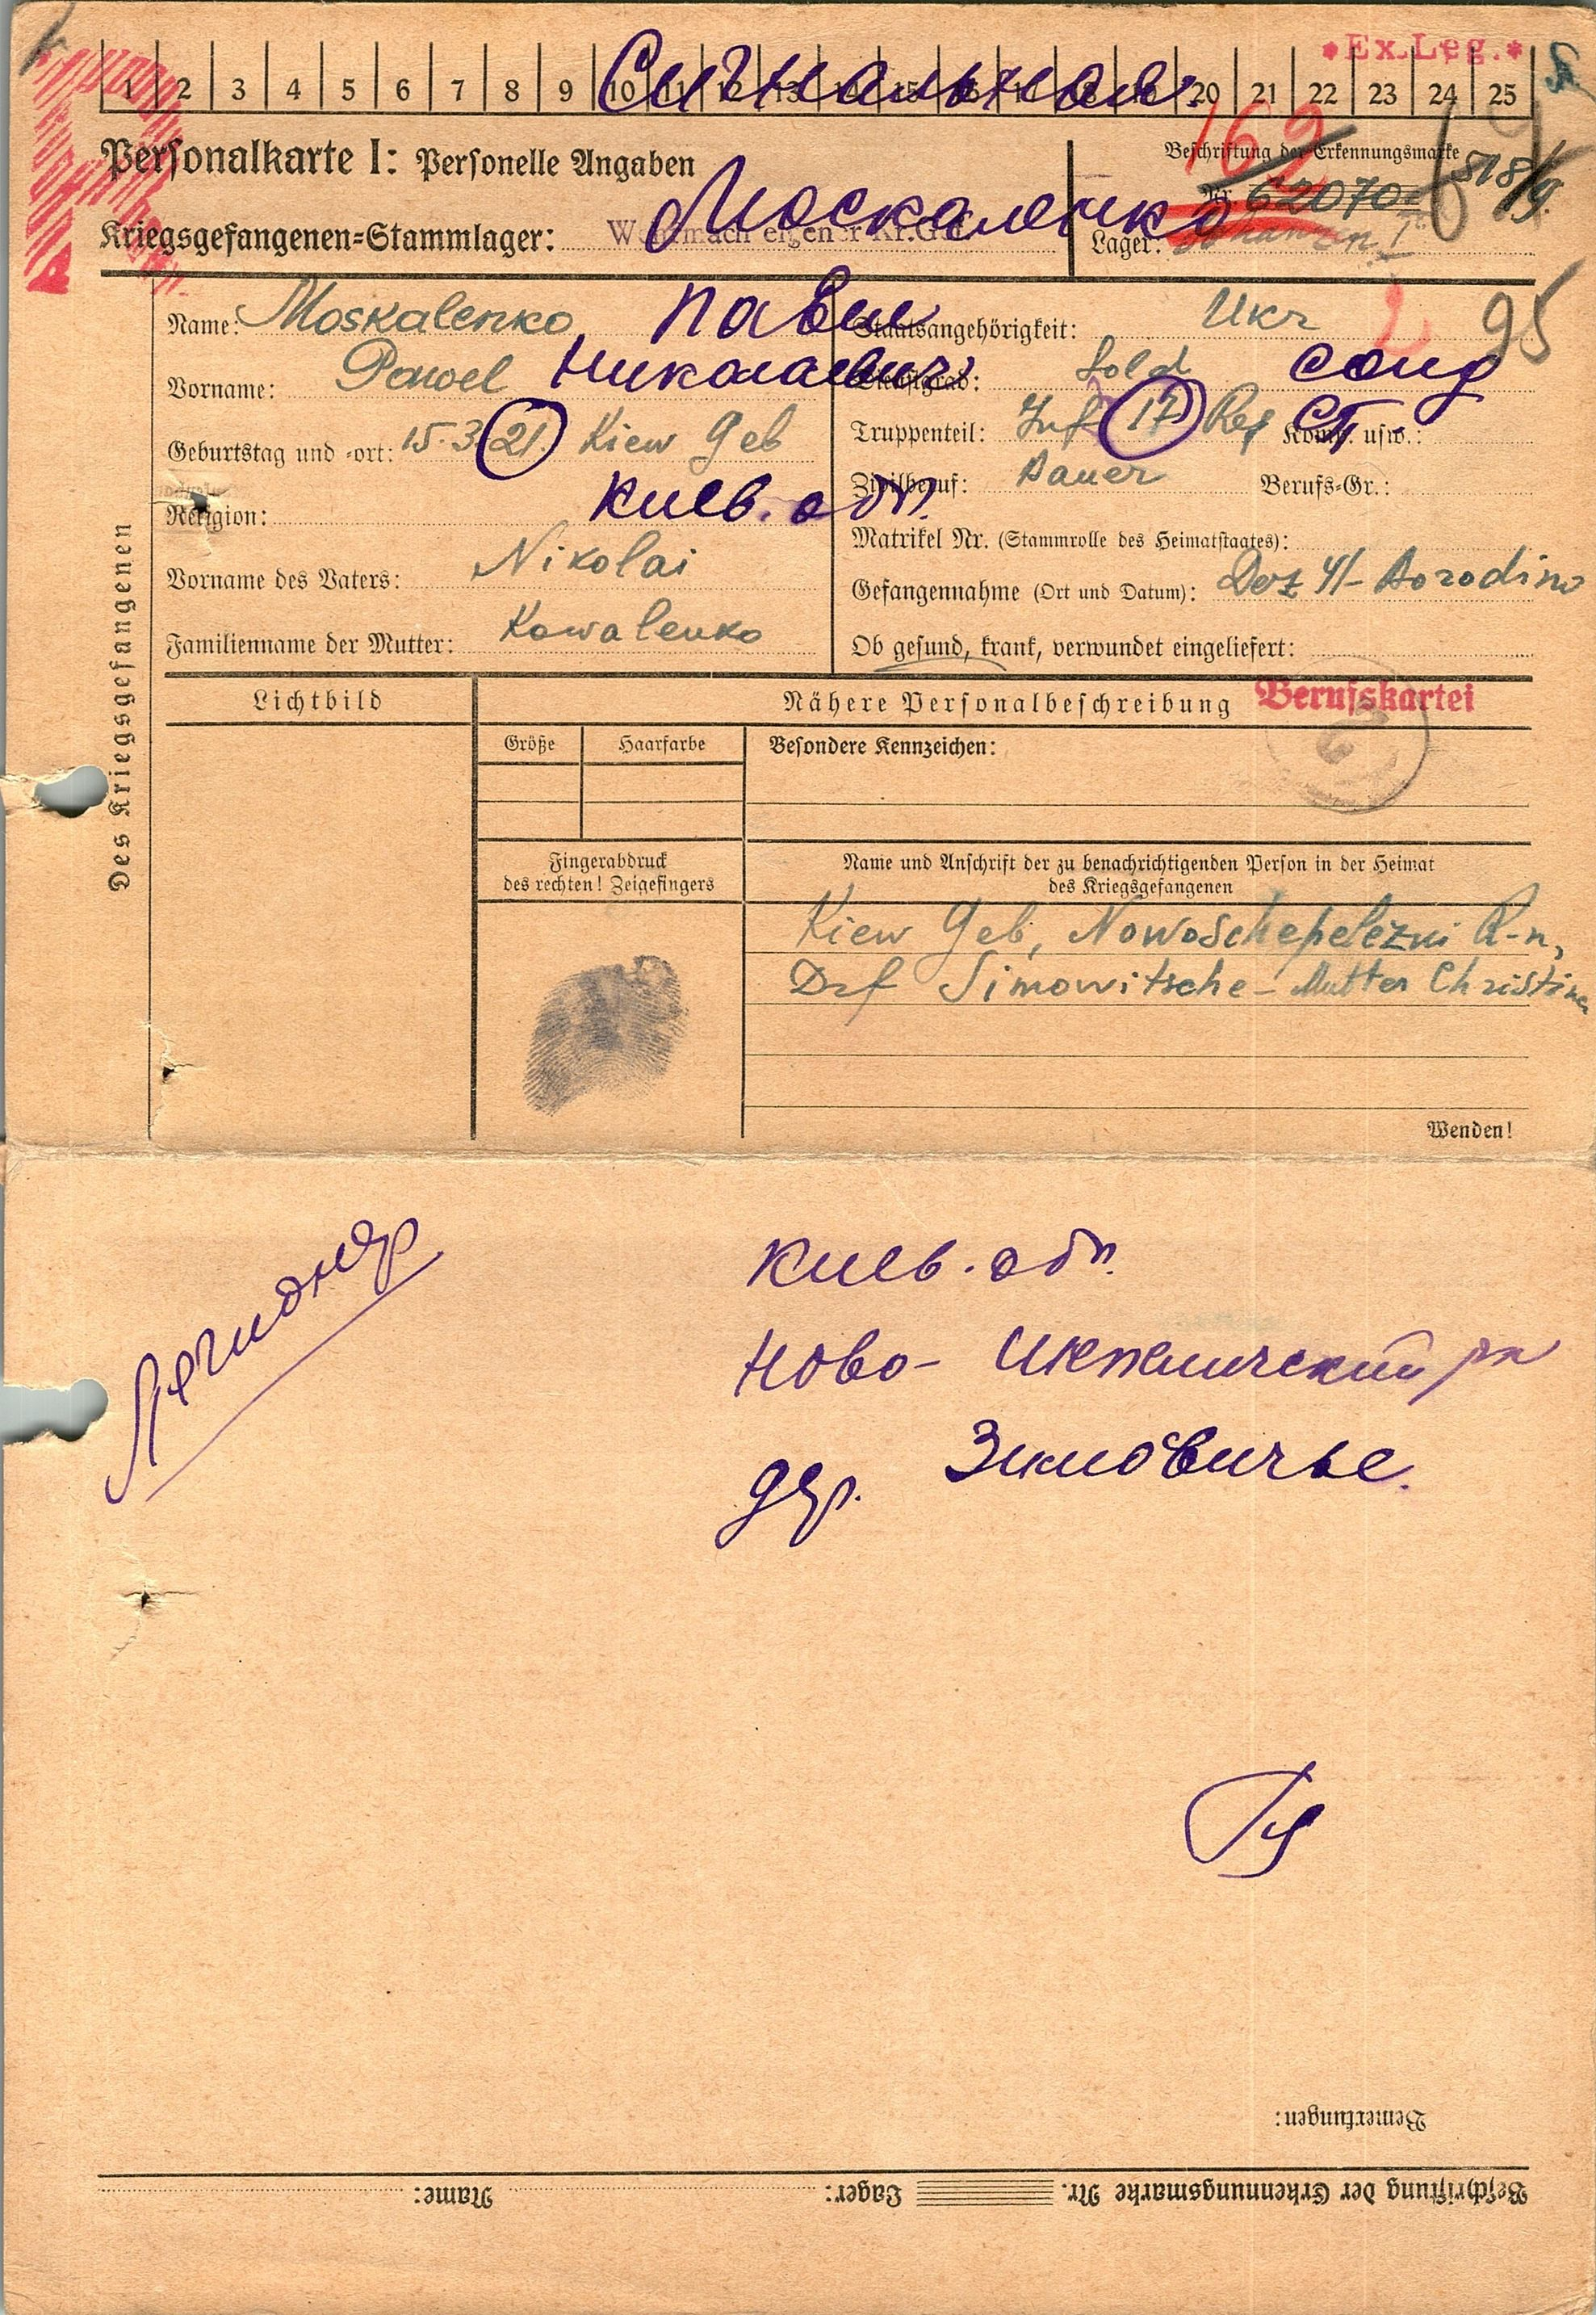 *Ex.Leg.*
1 2 3 4 5 6 7 8 9 10 11 12 13 20 21 22 23 24 25
Сигнальная
162
Personalkarte I: Personelle Angaben
Beschriftung der Erkennungsmarke
518/
Nr. 62070
Москаленко
Kriegsgefangenen-Stammlager:
Lager:
Des Kriegsgefangenen
Name: Moskalenko
Павел
Staatsangehörigkeit: Ukr
95
Vorname: Pawel
Николаевич
Dienstgrad: Sold
солд
Geburtstag und -ort: 15.3.21. Kiew Geb
Truppenteil: Inf 17 Reg Komp. usw.:
Киев. обл.
Zivilberuf: Bauer Berufs-Gr.:
Religion:
Matrikel Nr. (Stammrolle des Heimatstaates):
Vorname des Vaters: Nikolai
Gefangennahme (Ort und Datum): Dez 41- Borodino
Familienname der Mutter: Kowalenko
Ob gesund, krank, verwundet eingeliefert:
Lichtbild
Nähere Personalbeschreibung
Berufskartei
Größe
Haarfarbe
Besondere Kennzeichen:
Fingerabdruck
des rechten! Zeigefingers
Name und Anschrift der zu benachrichtigenden Person in der Heimat
des Kriegsgefangenen
Kiew Geb, Nowoschepelezki R-n,
Drf Simowitsche - Mutter Christina
Wenden!
Легионер
Киев. обл.
Ново- рн
дер. Зимовичье.
Bemerkungen:
Beschriftung der Erkennungsmarke Nr. Lager: Name: